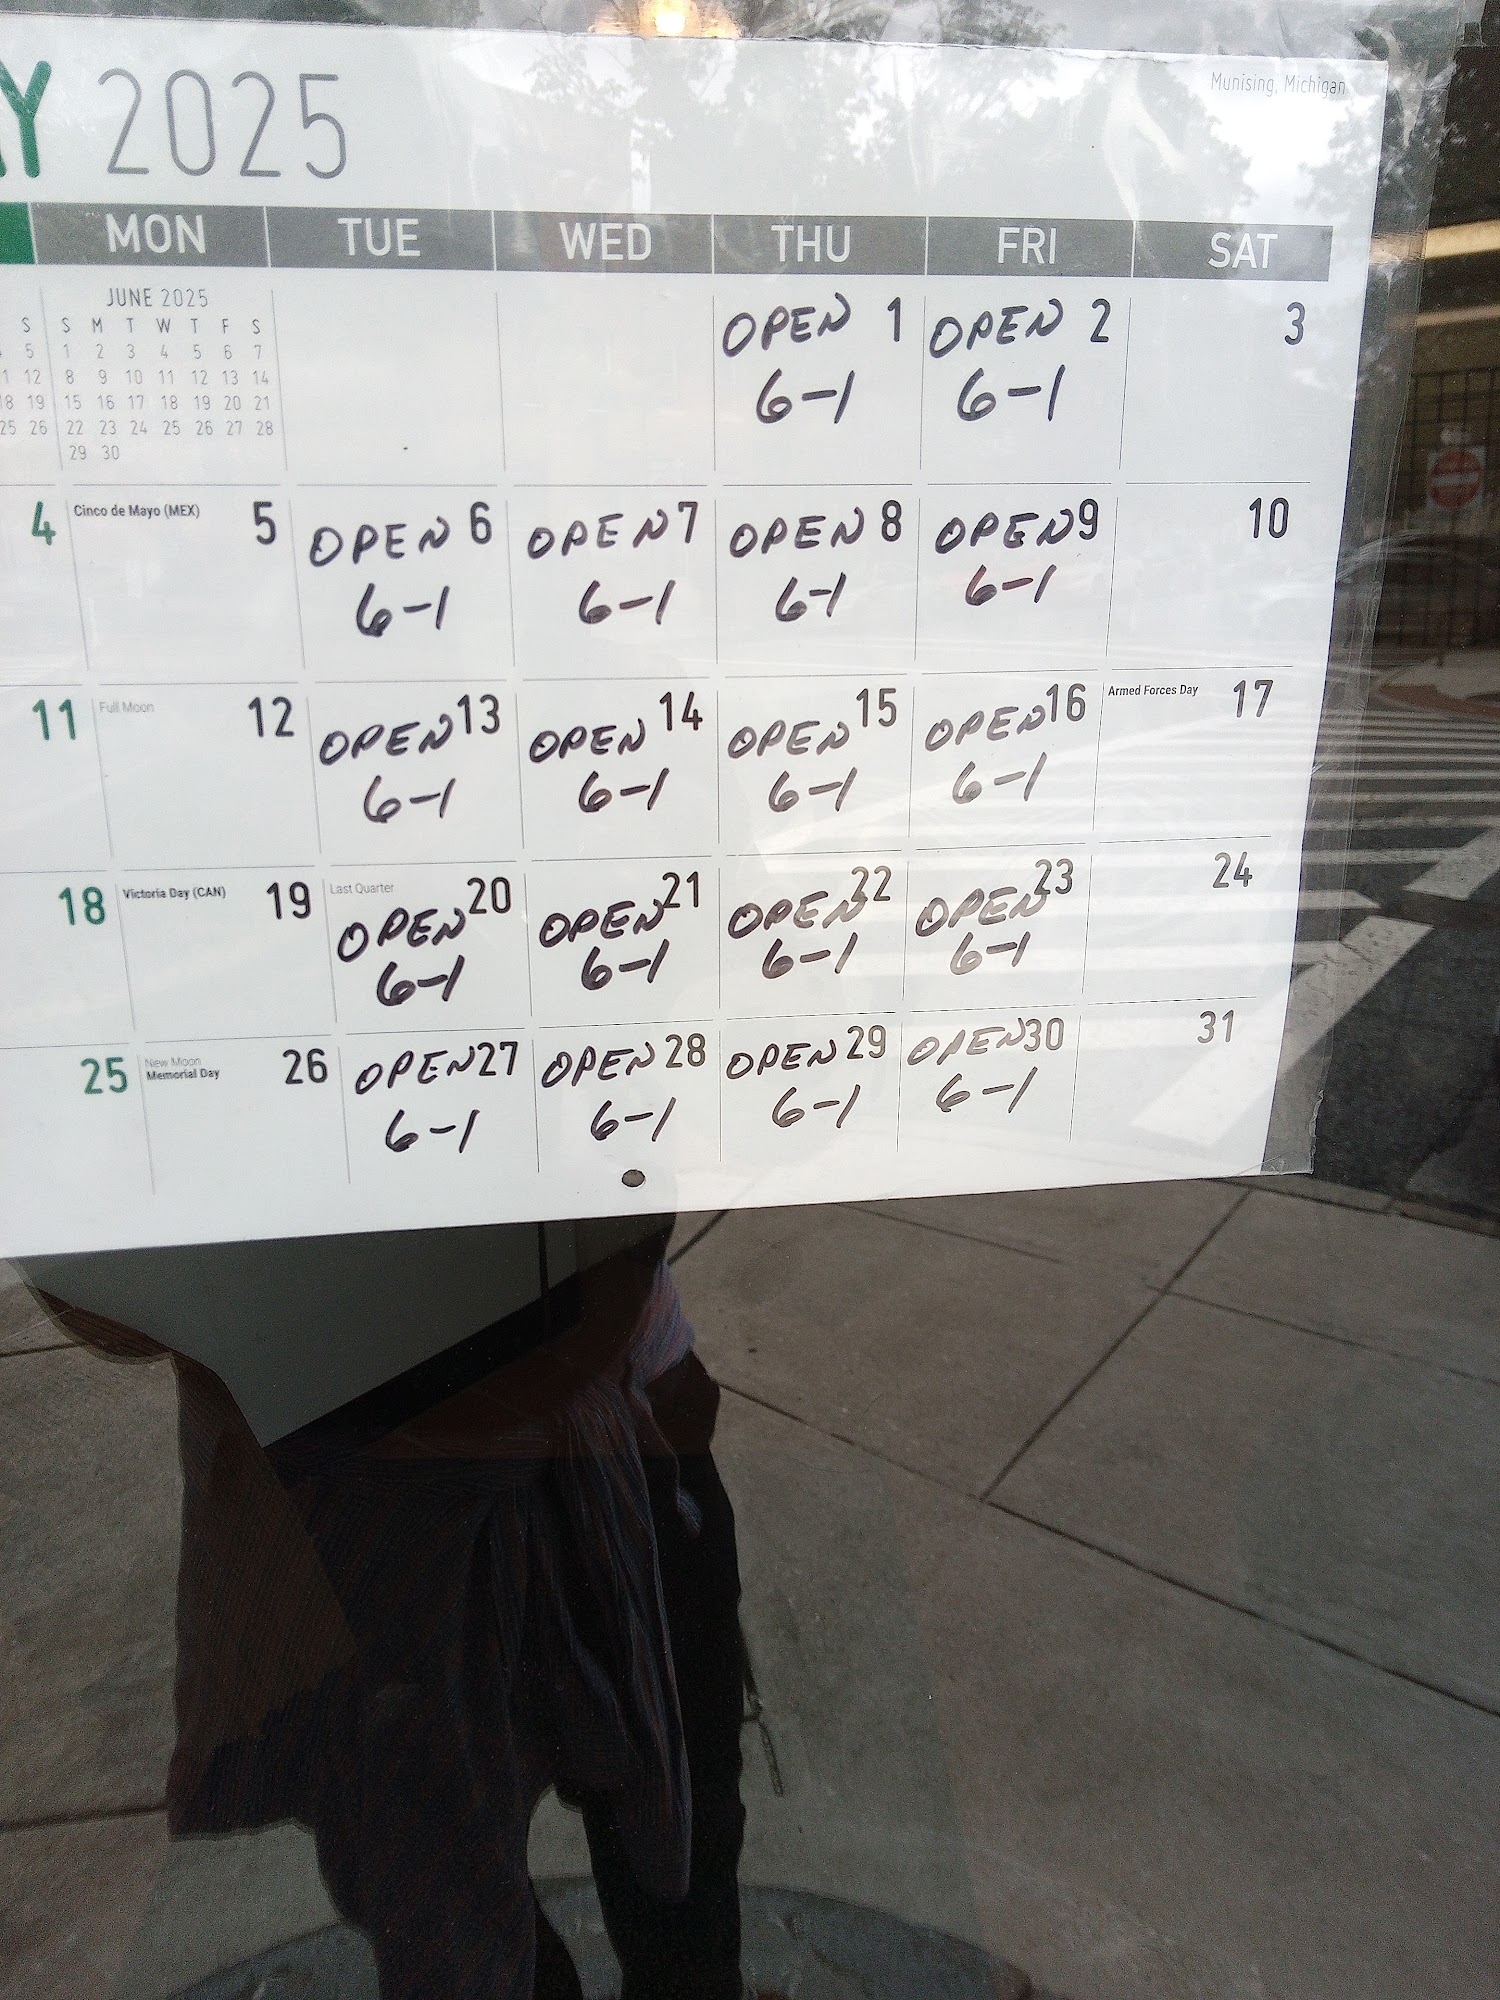 Y 2025
Munising, Michigan
MON TUE WED THU FRI SAT
JUNE 2025
S S M T W T F S
5 1 2 3 4 5 6 7
12 8 9 10 11 12 13 14
18 19 15 16 17 18 19 20 21
25 26 22 23 24 25 26 27 28
29 30
OPEN 1 OPEN 2 3
6-1 6-1
4 Cinco de Mayo (MEX) 5 OPEN 6 OPEN 7 OPEN 8 OPEN 9 10
6-1 6-1 6-1 6-1
11 Full Moon 12 OPEN 13 OPEN 14 OPEN 15 OPEN 16 Armed Forces Day 17
6-1 6-1 6-1 6-1
18 Victoria Day (CAN) 19 Last Quarter 20 21 22 23 24
OPEN OPEN OPEN OPEN
6-1 6-1 6-1 6-1
25 New Moon 26 OPEN 27 OPEN 28 OPEN 29 OPEN 30 31
Memorial Day
6-1 6-1 6-1 6-1